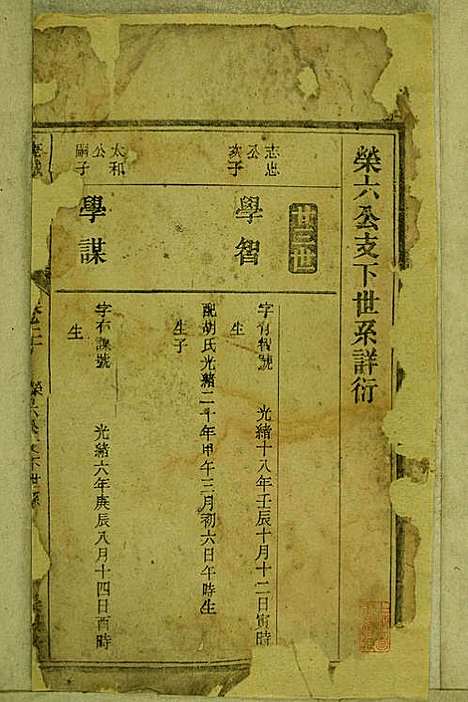 榮六公支下世系詳衍
廿三世
志忠公次子
學智
字有智號 光緒十八年壬辰十月十二日寅時
生
配胡氏光緒二十年甲午三月初六日午時生
生子
太和公嗣子
學謀
字有謀號 光緒六年庚辰八月十四日酉時
生
榮六公支下世系